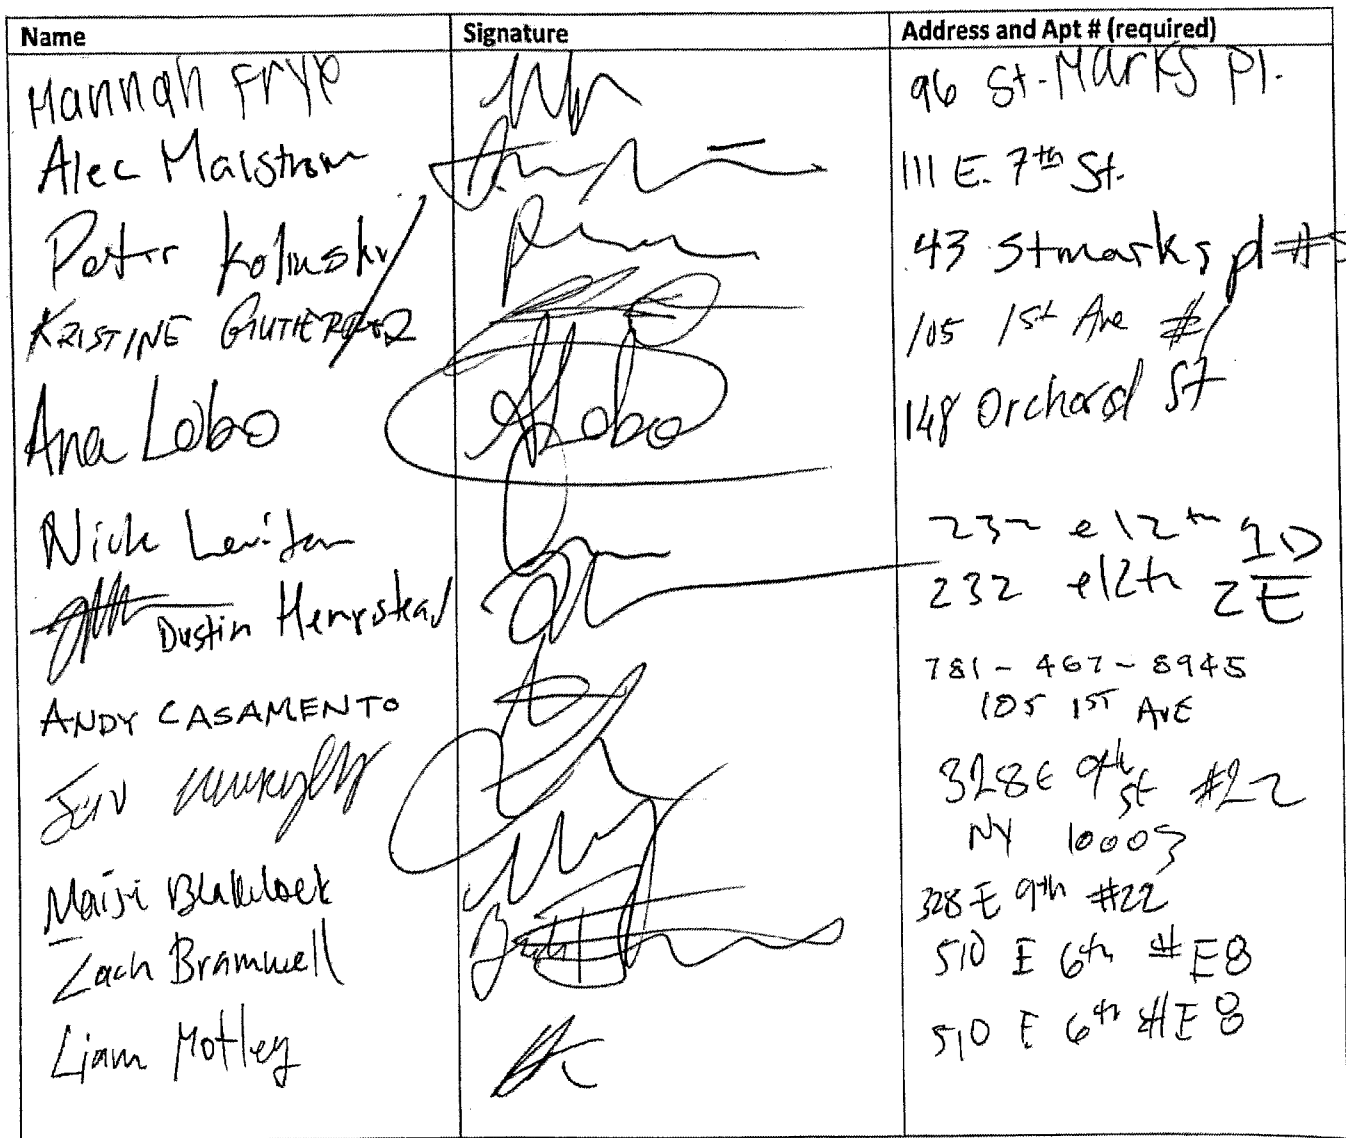 Name Signature Address and Apt # (required)
Hannah Frye 96 St. Marks Pl.
Alec Malstrom 111 E. 7th St.
Peter 43 St marks pl #5
KRISTINE GUTIERREZ 105 1st Ave #
Ana Lobo ALobo 148 Orchard St
Nick Levitan 232 e12th 1D
Dustin Hempstead 232 e12th 2E
781-467-8945
ANDY CASAMENTO 105 1ST AVE
Jen 328 E 9th St #22
NY 10003
Blakelock 328 E 9th #22
Zach Bramwell 510 E 6th # E8
Liam Motley 510 E 6th #E8